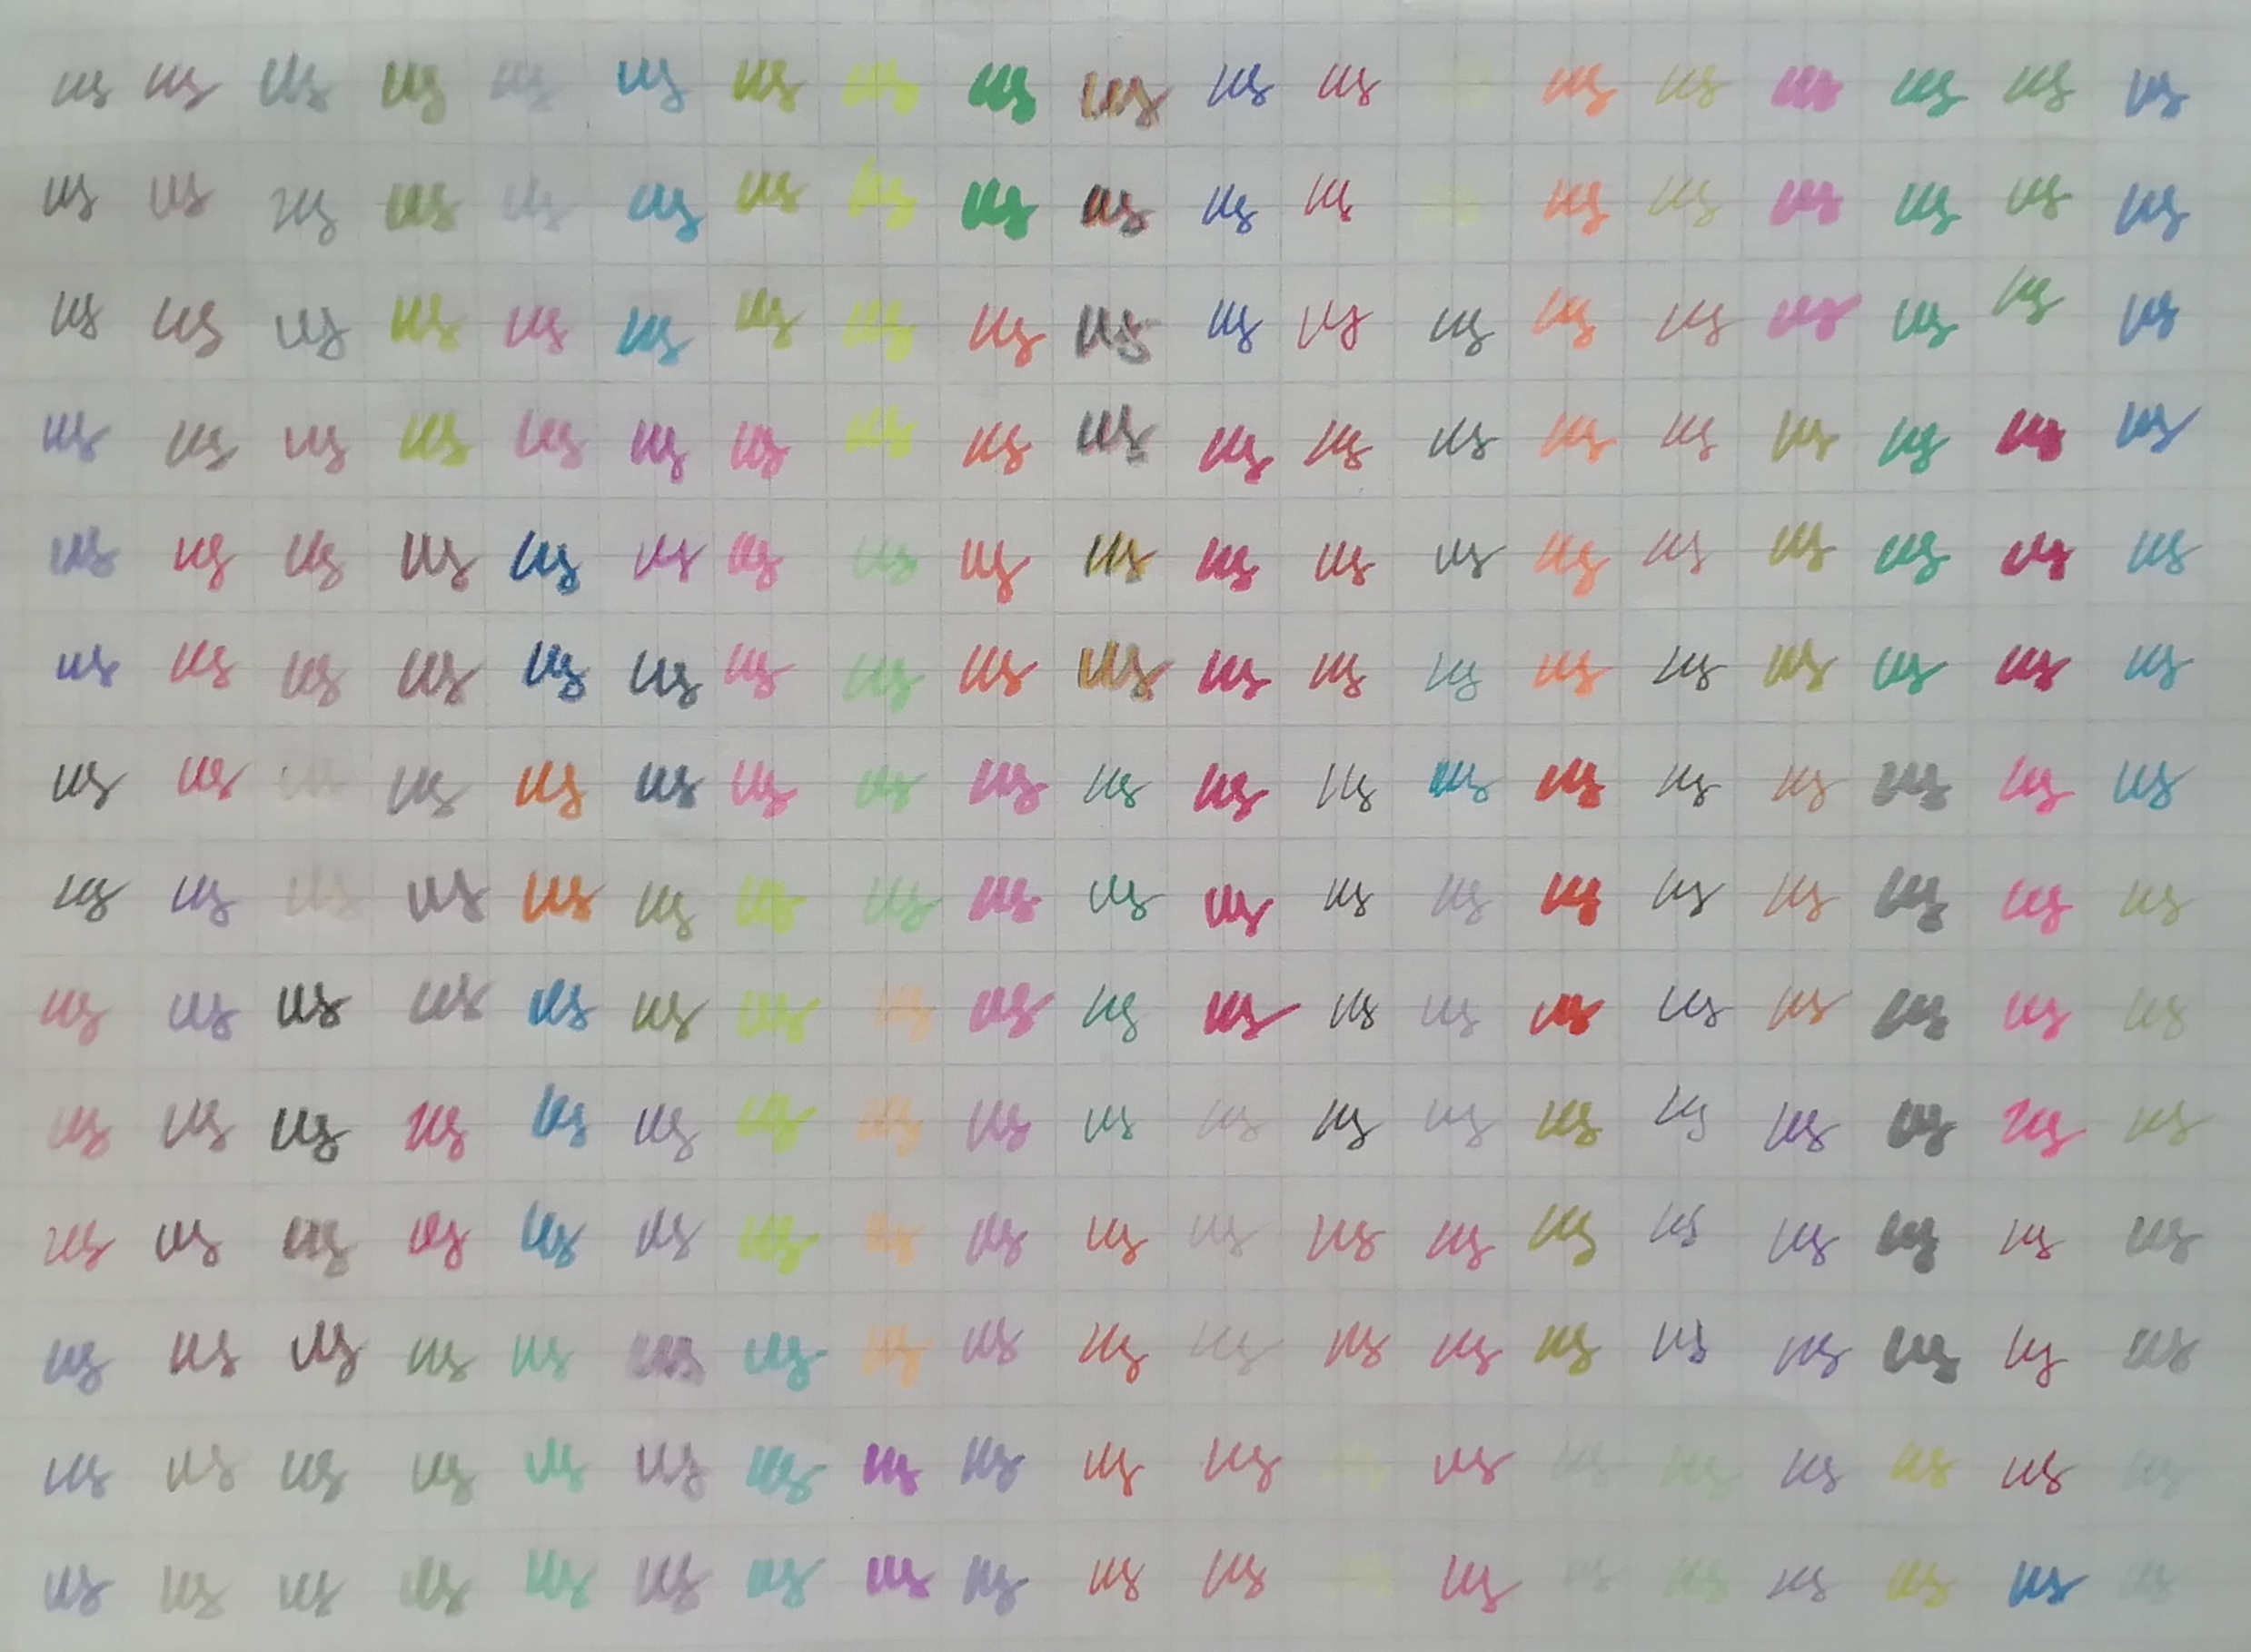 us us us us us us us us us us us us us us us us us us
us us us us us us us us us us us us us us us us us us
us us us us us us us us us us us us us us us us us us us
us us us us us us us us us us us us us us us us us us us
us us us us us us us us us us us us us us us us us us us
us us us us us us us us us us us us us us us us us us us
us us us us us us us us us us us us us us us us us us us
us us us us us us us us us us us us us us us us us us us
us us us us us us us us us us us us us us us us us us us
us us us us us us us us us us us us us us us us us us us
us us us us us us us us us us us us us us us us us us us
us us us us us us us us us us us us us us us us us us us
us us us us us us us us us us us us us us us us us us
us us us us us us us us us us us us us us us us us us